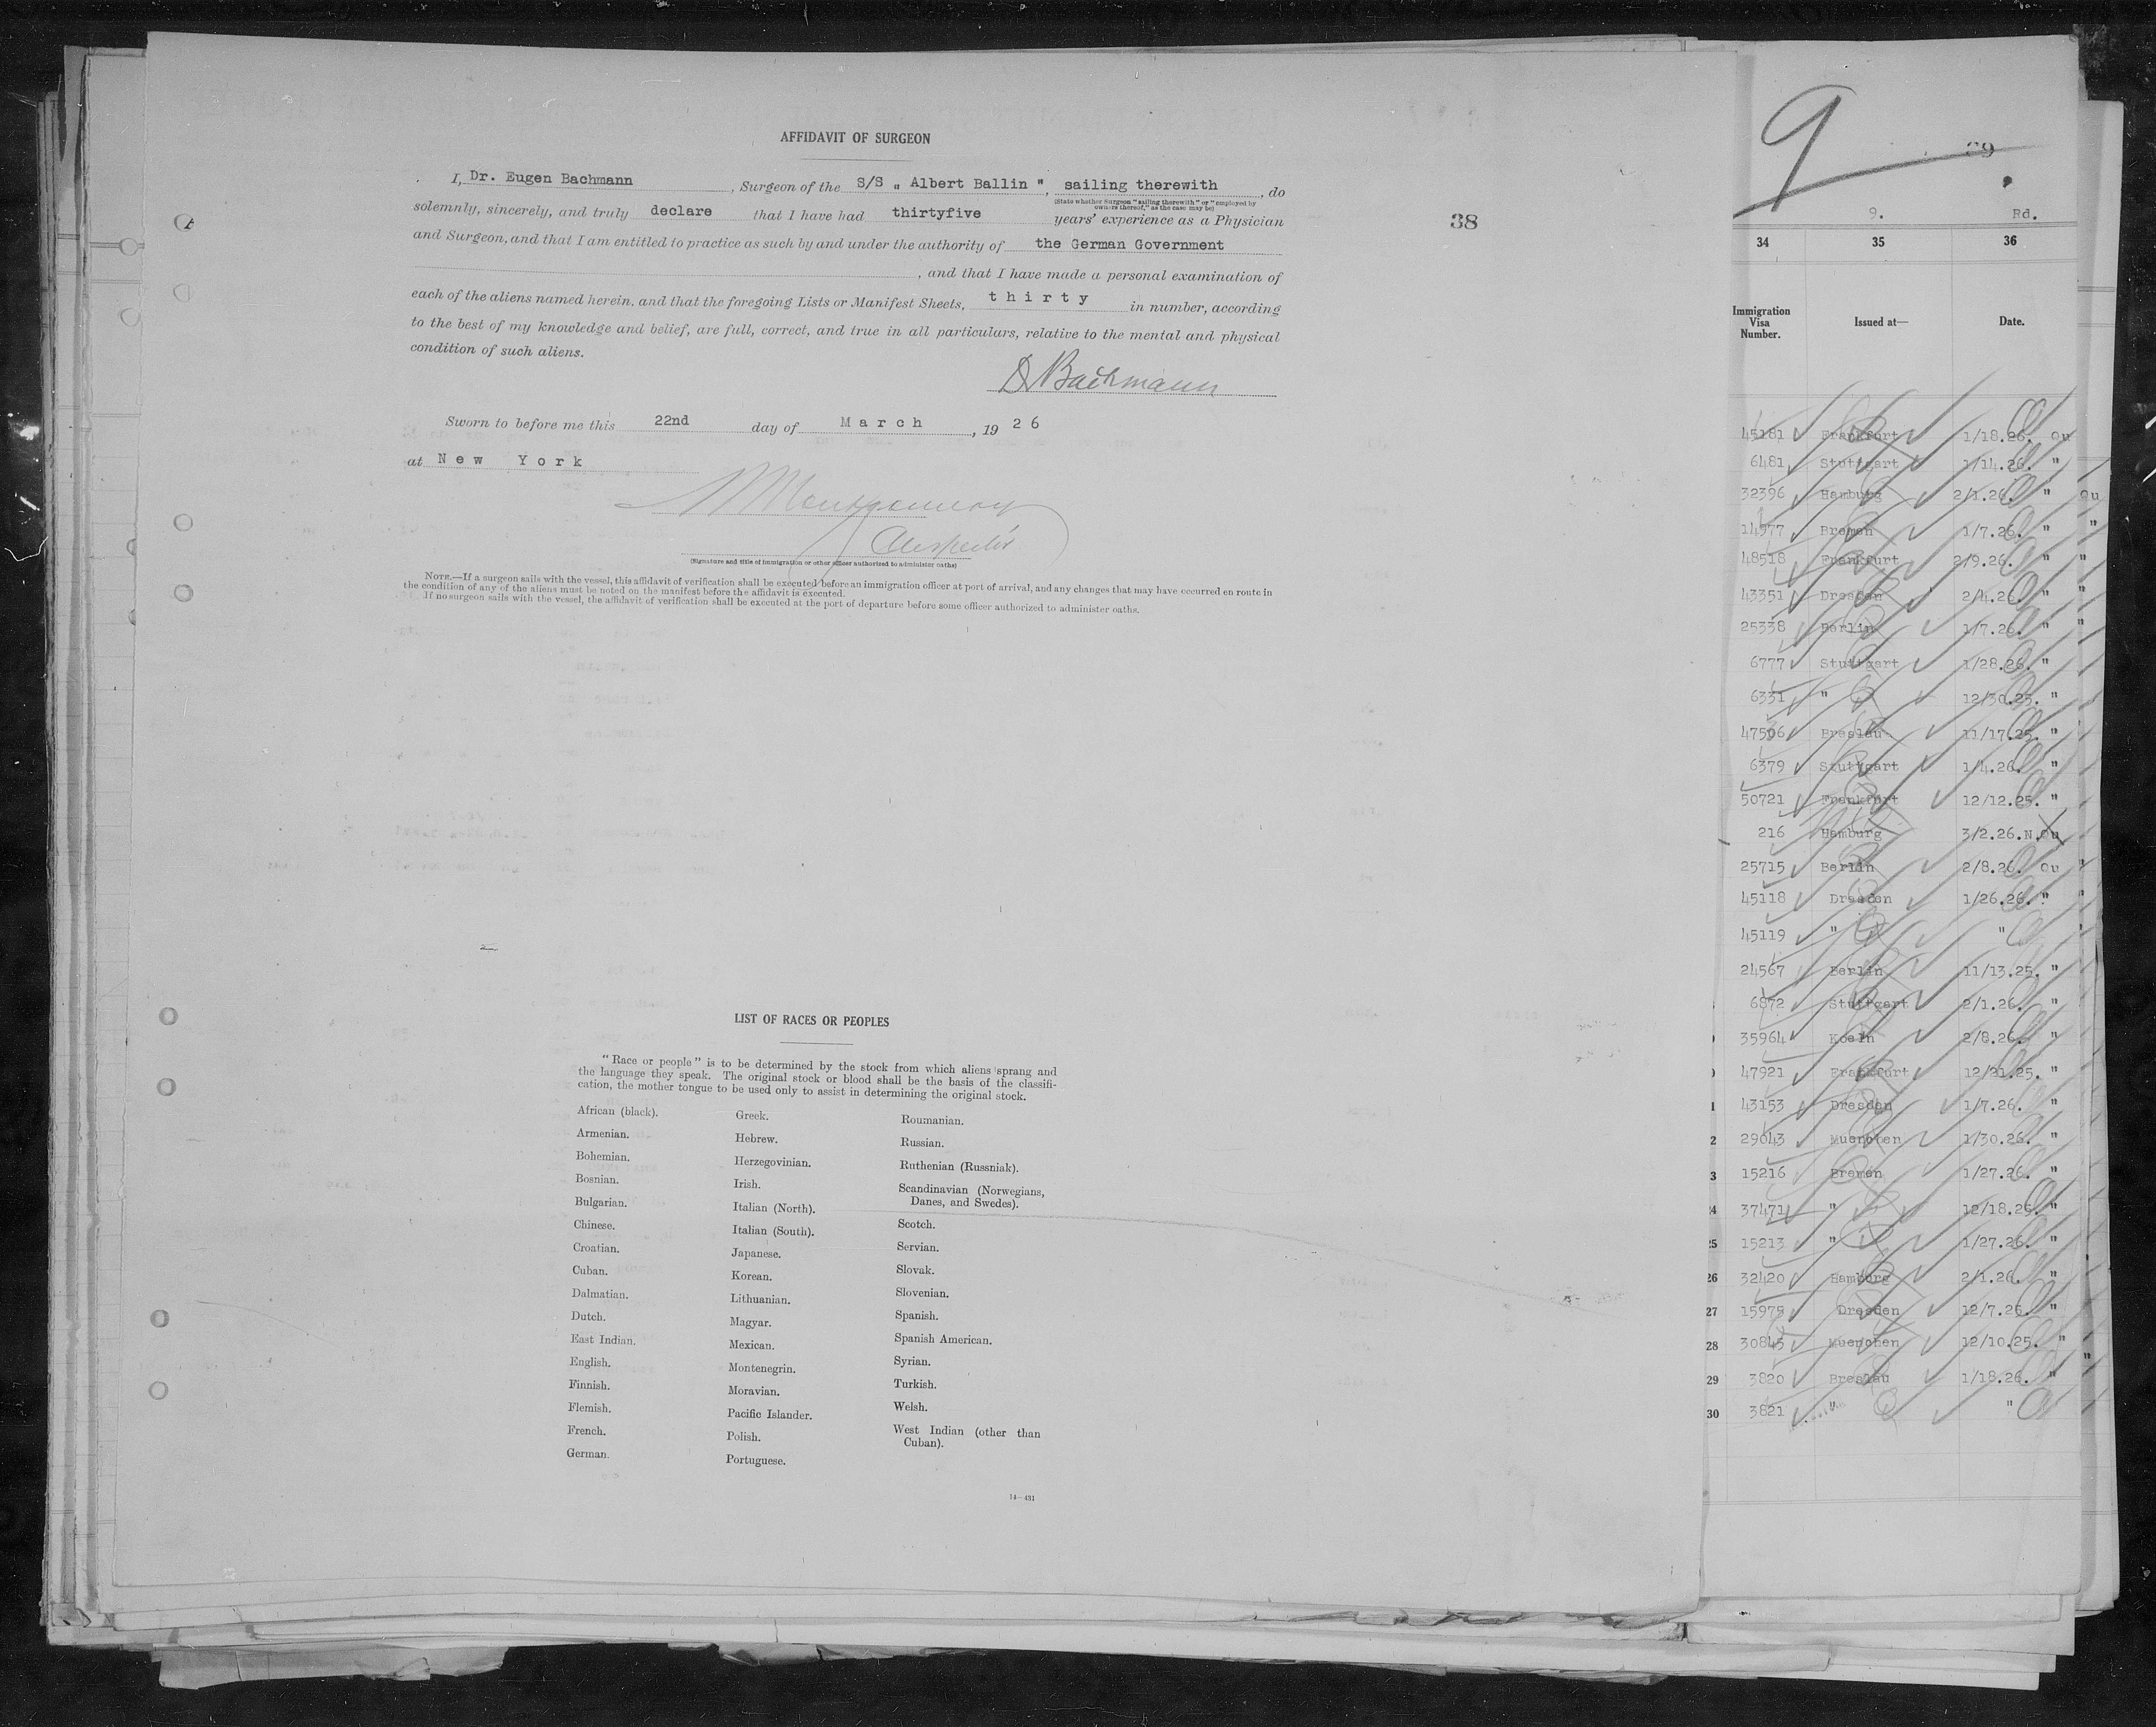 AFFIDAVIT OF SURGEON
I, Dr. Eugen Bachmann, Surgeon of the S/S " Albert Ballin ", sailing therewith, do
(State whether Surgeon "sailing therewith" or "employed by owners thereof," as the case may be)
solemnly, sincerely, and truly declare that I have had thirtyfive years' experience as a Physician
and Surgeon, and that I am entitled to practice as such by and under the authority of the German Government
, and that I have made a personal examination of
each of the aliens named herein, and that the foregoing Lists or Manifest Sheets, thirty in number, according
to the best of my knowledge and belief, are full, correct, and true in all particulars, relative to the mental and physical
condition of such aliens.
Bachmann
Sworn to before me this 22nd day of March, 19 26
at New York
Montgomery
(Signature and title of immigration or other officer authorized to administer oaths)
NOTE.—If a surgeon sails with the vessel, this affidavit of verification shall be executed before an immigration officer at port of arrival, and any changes that may have occurred en route in
the condition of any of the aliens must be noted on the manifest before the affidavit is executed.
If no surgeon sails with the vessel, the affidavit of verification shall be executed at the port of departure before some officer authorized to administer oaths.
38
LIST OF RACES OR PEOPLES
"Race or people" is to be determined by the stock from which aliens sprang and
the language they speak. The original stock or blood shall be the basis of the classifi-
cation, the mother tongue to be used only to assist in determining the original stock.
African (black).
Armenian.
Bohemian.
Bosnian.
Bulgarian.
Chinese.
Croatian.
Cuban.
Dalmatian.
Dutch.
East Indian.
English.
Finnish.
Flemish.
French.
German.
Greek.
Hebrew.
Herzegovinian.
Irish.
Italian (North).
Italian (South).
Japanese.
Korean.
Lithuanian.
Magyar.
Mexican.
Montenegrin.
Moravian.
Pacific Islander.
Polish.
Portuguese.
Roumanian.
Russian.
Ruthenian (Russniak).
Scandinavian (Norwegians,
Danes, and Swedes).
Scotch.
Servian.
Slovak.
Slovenian.
Spanish.
Spanish American.
Syrian.
Turkish.
Welsh.
West Indian (other than
Cuban).
14—431
9
9. Rd.
34 35 36
Immigration
Visa
Number.
Issued at—
Date.
45181 Frankfurt 1/18.26. Qu
6481 Stuttgart 1/14.26. "
32396 Hamburg 2/1.26. " Qu
14977 Bremen 1/7.26. " "
48518 Frankfurt 2/9.26. " "
43351 Dresden 2/4.26. " "
25338 Berlin 1/7.26. " "
6777 Stuttgart 1/28.26. "
6331 " 12/30.25. "
47506 Breslau 11/17.25. "
6379 Stuttgart 1/4.26. "
50721 Frankfurt 12/12.25. "
216 Hamburg 3/2.26. N.Qu
25715 Berlin 2/8.26. Qu "
45118 Dresden 1/26.26. " "
45119 " "
24567 Berlin 11/13.25. "
6872 Stuttgart 2/1.26. "
35964 Koeln 2/8.26. "
47921 Frankfurt 12/21.25. "
1 43153 Dresden 1/7.26. "
2 29043 Muenchen 1/30.26. "
3 15216 Bremen 1/27.26. "
24 37471 " 12/18.25. "
25 15213 " 1/27.26. "
26 32420 Hamburg 2/1.26. "
27 15975 Dresden 12/7.25. "
28 30845 Muenchen 12/10.25. "
29 3820 Breslau 1/18.26. " "
30 3821 " "